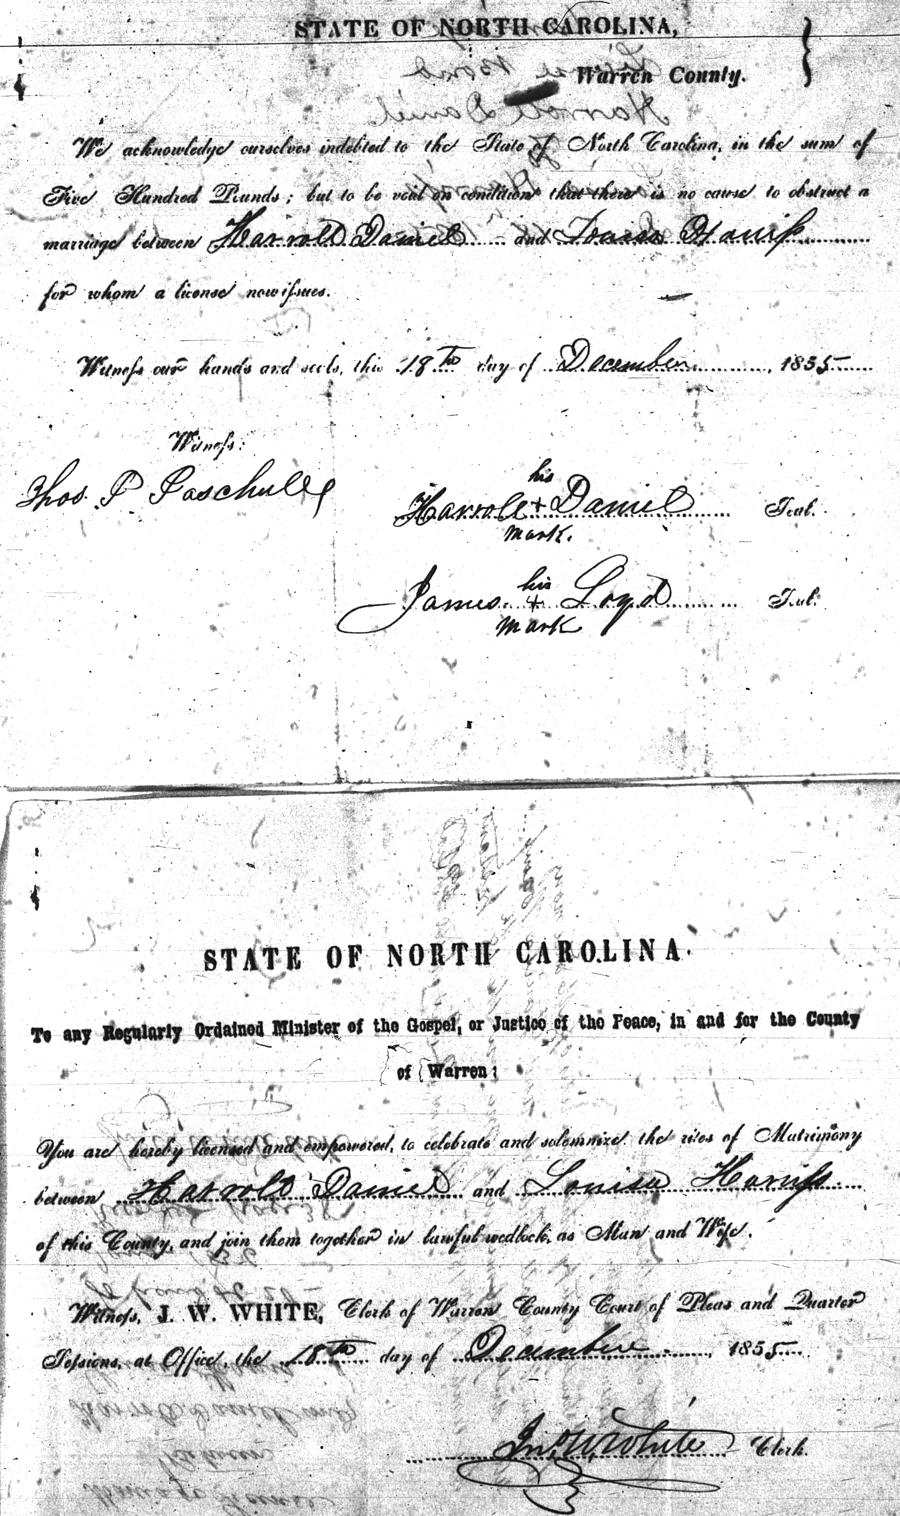 STATE OF NORTH CAROLINA,
Warren County.
We acknowledge ourselves indebted to the State of North Carolina, in the sum of
Five Hundred Pounds; but to be void on condition that there is no cause to obstruct a
marriage between Harrold Daniel and Louisa Harriss
for whom a license now issues.
Witness our hands and seals, this 18th day of December, 1855
Witness:
Thos. P Paschall
his
Harrole + Daniel Seal.
mark.
his
James + Loyd Seal.
mark
STATE OF NORTH CAROLINA.
To any Regularly Ordained Minister of the Gospel, or Justice of the Peace, in and for the County
of Warren:
You are hereby licensed and empowered, to celebrate and solemnize the rites of Matrimony
between Harrold Daniel and Louisa Harriss
of this County, and join them together in lawful wedlock, as Man and Wife.
Witness, J. W. WHITE, Clerk of Warren County Court of Pleas and Quarter
Sessions, at Office, the 18th day of December, 1855
Jno. W. White Clerk.